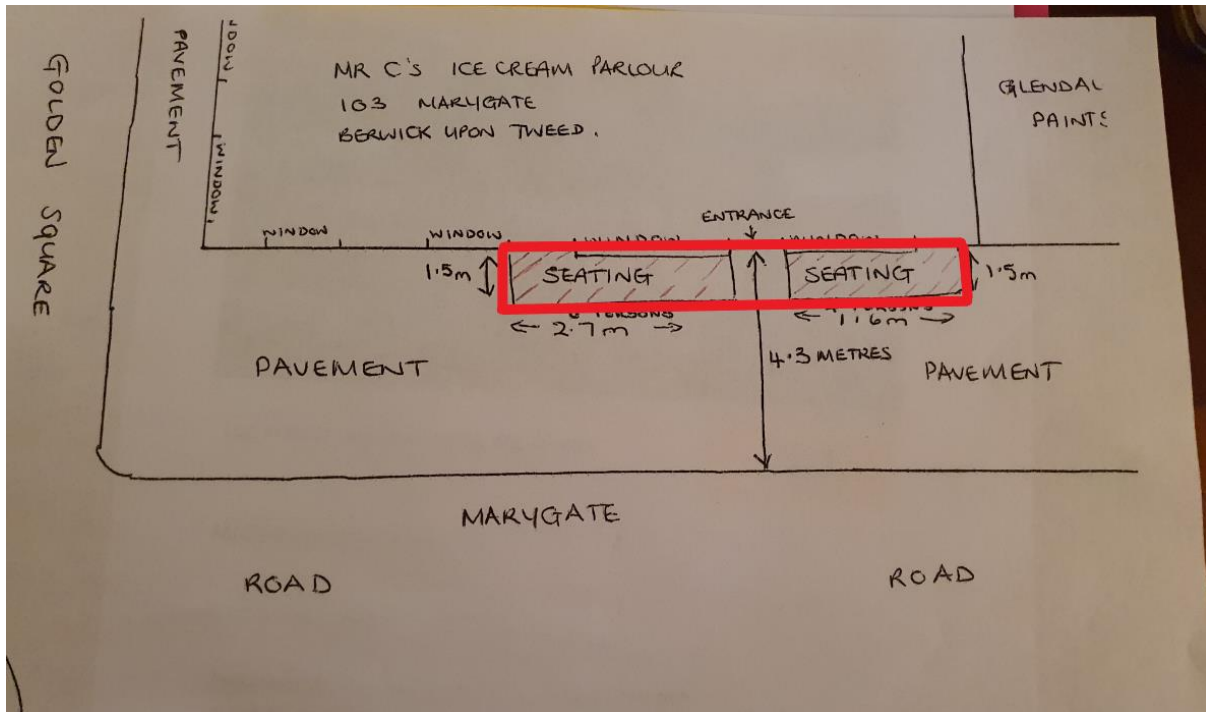 GOLDEN SQUARE
PAVEMENT
WINDOW
MR C'S ICE CREAM PARLOUR
103 MARYGATE
BERWICK UPON TWEED.
GLENDAL
PAINTS
ENTRANCE
WINDOW
WINDOW
WINDOW
WINDOW
1.5m
SEATING
SEATING
1.5m
PERSONS
2.7m
1.6m
4.3 METRES
PAVEMENT
PAVEMENT
MARYGATE
ROAD
ROAD